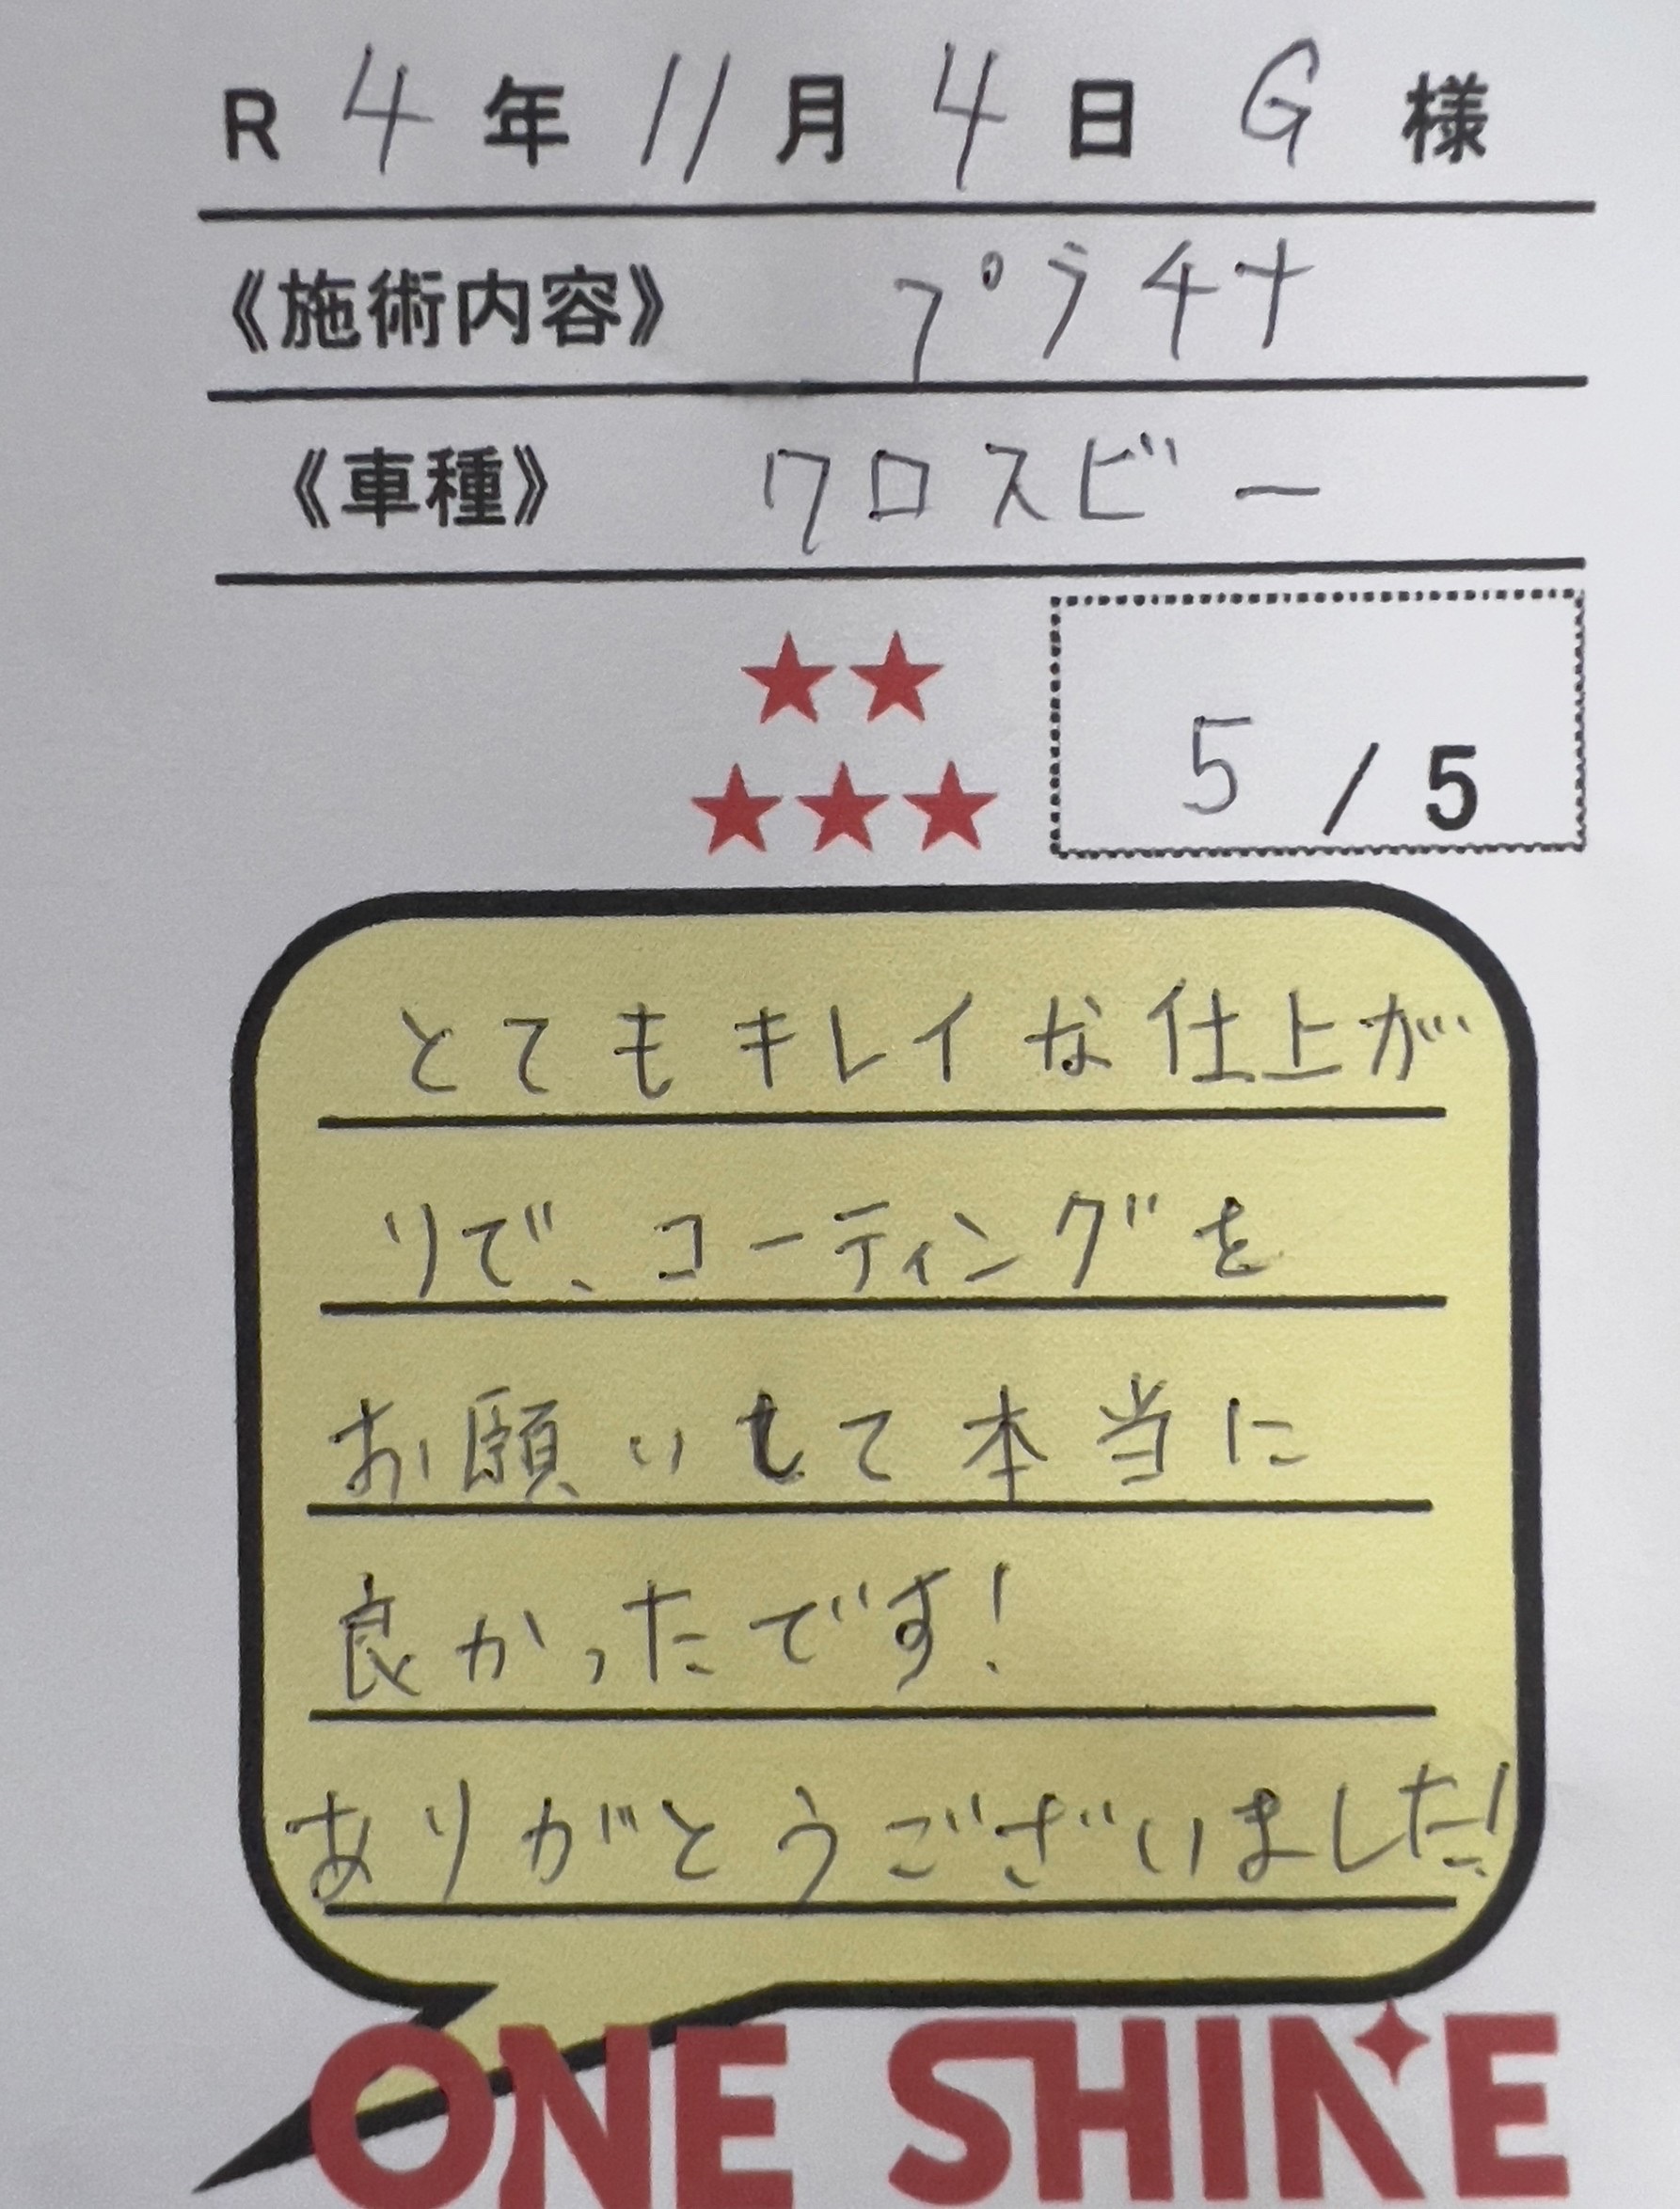 R 4 年 11 月 4 日 G 様
《施術内容》 プラチナ
《車種》 クロスビー
★★
★★★ 5 / 5
とてもキレイな仕上が
りで、コーティングを
お願いして本当に
良かったです!
ありがとうございました!
ONE SHINE